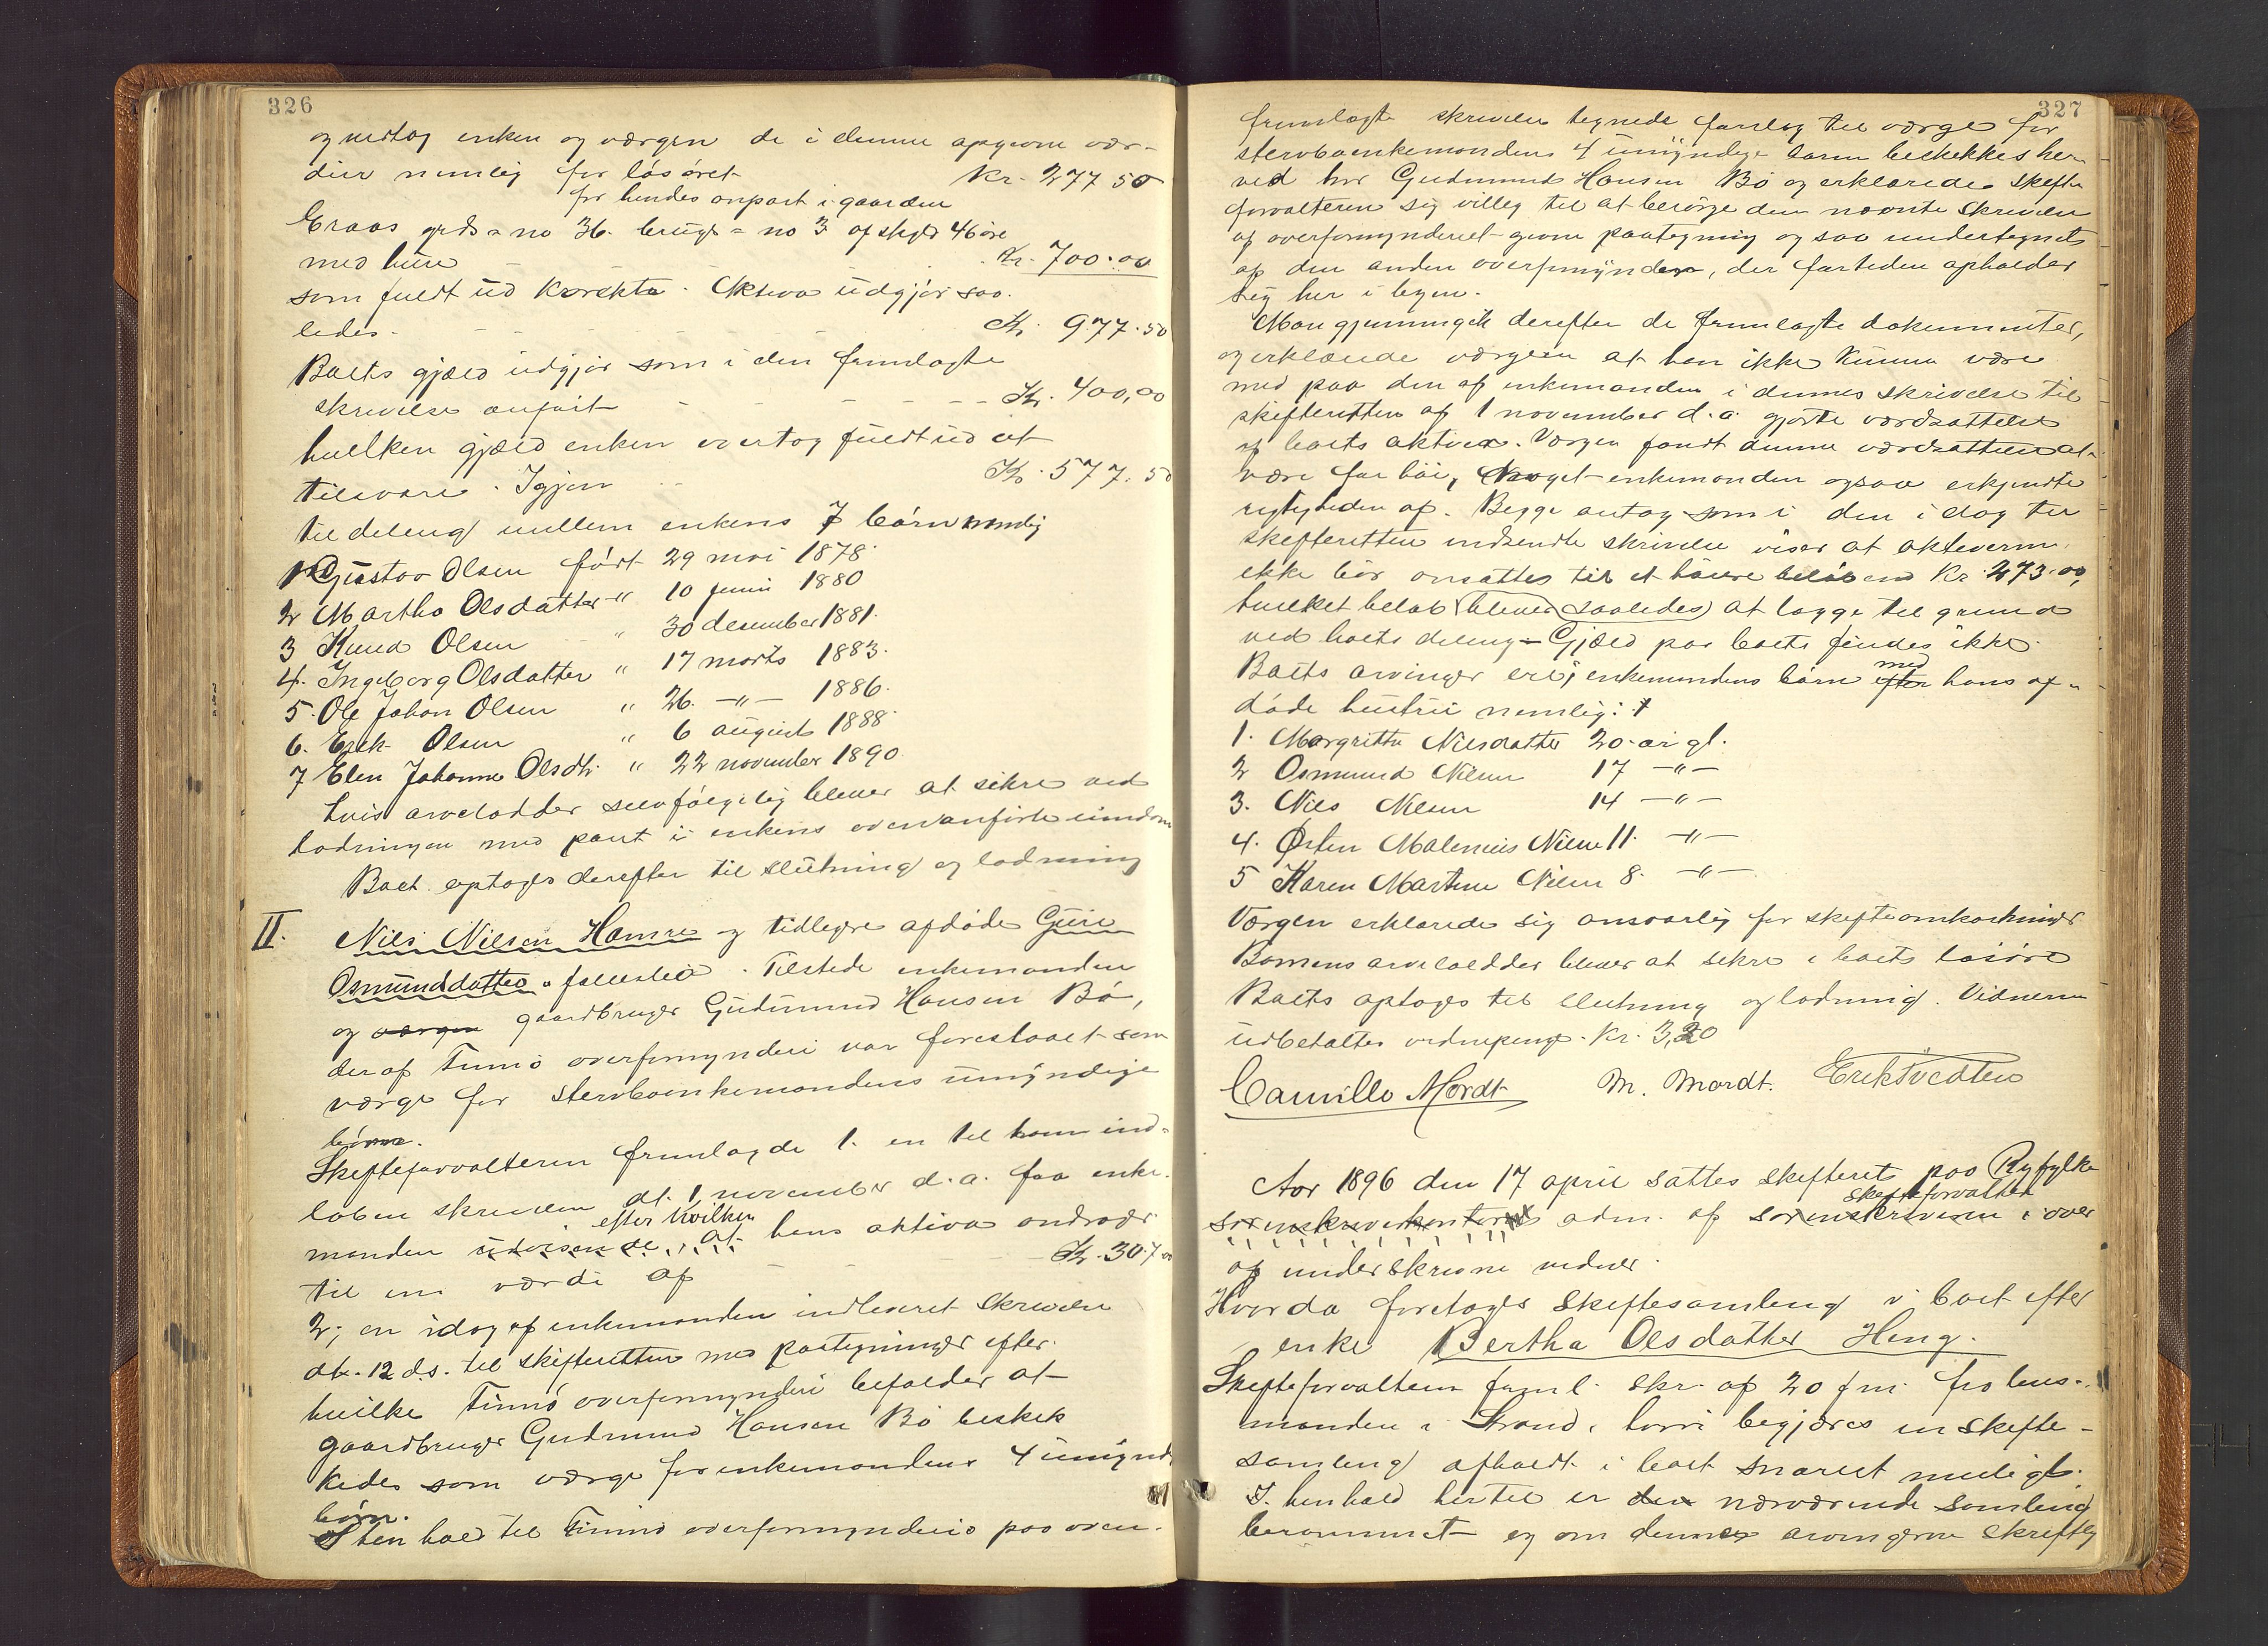 326
og vedtog enken og værgen de i denne opgivne vær-
dier nemlig for løsøret Kr. 277 50
for hendes anpart i gaarden
Eraas grds-no 36. brugs-no 3 af skyld 46 øre
med hure Kr. 700.00
som fuldt ud korekte. Aktiva udgjør saa-
ledes - Kr. 977.50
Boets gjæld udgjør som i den fremlagte
skrivelse anført - - - - - Kr. 400,00
hvilken gjæld enken overtog fuldt ud at
tilsvare. Igjen Kr. 577.50
til deling mellem enkens 7 børn nemlig
1 Gustav Olsen født 29 mai 1878.
2 Martha Olsdatter " 10 juni 1880
3 Knud Olsen " 30 desember 1881.
4. Ingeborg Olsdatter " 17 marts 1883.
5. Ole Johan Olsen " 26. -"- 1886.
6. Erik Olsen " 6 august 1888.
7 Elen Johanne Olsdtr. " 22 november 1890.
hvis arvelodder selvfølgelig bliver at sikre ved
lodningen med pant i enkens ovenanførte eiendom
Boet optoges derefter til slutning og lodning
II. Nils Nilsen Hamre og tidligere afdøde Guri
Osmunddatters fællesbo. Tilstede enkemanden
og værgen gaardbruger Gudmund Hansen Bø,
der af Finnø overformynderi var foreslaaet som
værge for stervboenkemandens umyndige
børn.
Skifteforvalteren fremlagde 1. en til ham ind-
løben skrivelse dt. 1 november d.a. fra enke-
manden udvisende, efter hvilken at hans aktiva androg
til en værdi af - - - Kr. 307 00
2; en idag af enkemanden indleveret skrivelse
dt. 12 d.s. til skifteretten med paategninger efter
hvilke Finnø overformynderi befalder at
gaardbruger Gudmund Hansen Bø beskik
kedes som værge for enkemandens 4 umynd.
børn.
I henhold til Finnø overformynderis paa oven-
327
fremlagte skrivelse tegnede forslag til værge for
stervboenkemandens 4 umyndige børn beskikkes her
ved hr Gudmund Hansen Bø og erklærede skifte
forvalteren sig villig til at besørge den nævnte skrivelse
af overformynderiet given paategning og saa undertegnet
af den anden overformynder, der fortiden opholder
sig her i byen.
Man gjennemgik derefter de fremlagte dokumenter,
og erklærede værgen at han ikke kunne være
med paa den af enkemanden i dennes skrivelse til
skifteretten af 1 november d.a. gjorte værdsættelse
af boets aktiva. Værgen fandt denne værdsættelse at
være for høi, noget enkemanden ogsaa erkjendte
rigtigheden af. Begge antog som i den i dag til
skifteretten indsendte skrivelse viser at aktiverne
ikke bør ansættes til et høiere beløb end Kr. 273.00,
hvilket beløb bliver saaledes at lægge til grund
ved boets deling - Gjæld paa boets findes ikke.
Boets arvinger ere; enkemandens børn efter med hans af-
døde hustru nemlig:
1. Margritha Nilsdatter 20. aar gl.
2 Osmund Nilsen 17 -"-
3. Nils Nilsen 14 -"-
4. Østen Malenius Nilsen 11. -"-
5 Karen Martine Nilsen 8. -"-
Værgen erklærede sig ansvarlig for skifteomkostninger
Børnens arvelodder bliver at sikre i boets løsøre
Boets optoges til slutning og lodning. Vidnerne
udbetaltes vidnepenge. Kr. 3,20
Camillo Mordt M. Mordt. Erik Tvedten
Aar 1896 den 17 april sattes skifteret paa Ryfylke
sorenskriverkontores adm. af sorenskriveren skifteforvalteren i over
af underskrevne vidner.
Hvorda foretoges skiftesamling i boet efter
enke Bertha Olsdatter Heng.
Skifteforvalteren freml. skr. af 20 jni fra lens-
manden i Strand, hvori begjæres en skifte-
samling afholdt i boet snarest muligt.
I henhold hertil er den nærværende samling
berammet og om dennes arvingerne skriftlig